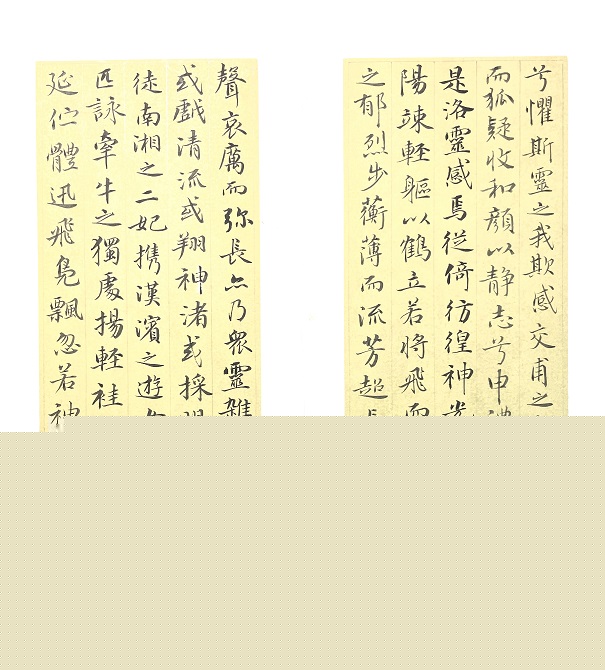 兮懼斯靈之我欺感交甫之
而狐疑收和顔以静志兮申
是洛靈感焉從倚彷徨神
陽竦軽軀以鶴立若将飛而
之郁烈步蘅薄而流芳超
聲哀厲而弥長尒乃衆靈雜
或戲清流或翔神渚或採
徒南湘之二妃携漢濱之遊
匹詠牽牛之獨處揚軽袿
延佇體迅飛鳧飄忽若神